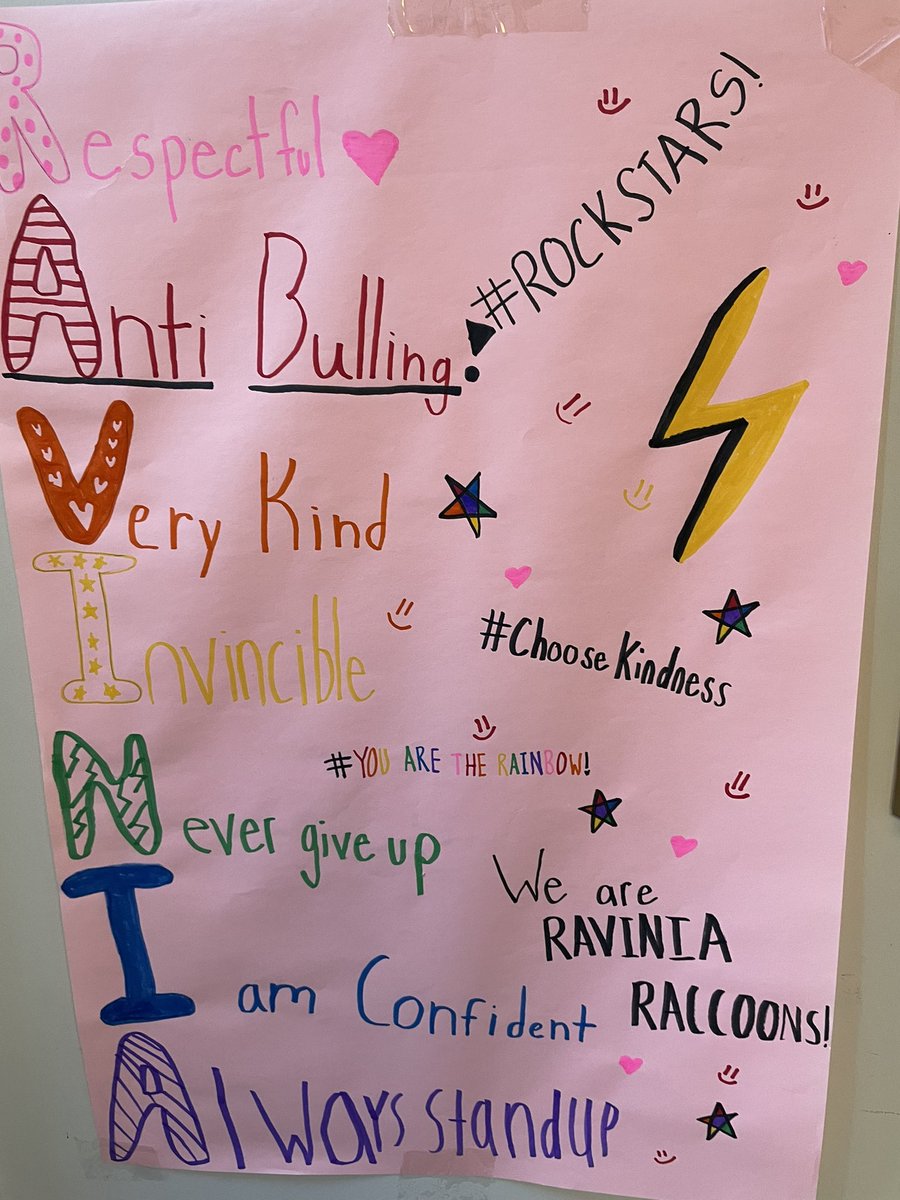 Respectful
#ROCKSTARS!
Anti Bulling!
Very Kind
Invincible
#Choose Kindness
#YOU ARE THE RAINBOW!
Never give up
We are
RAVINIA
RACCOONS!
I am Confident
Always standup